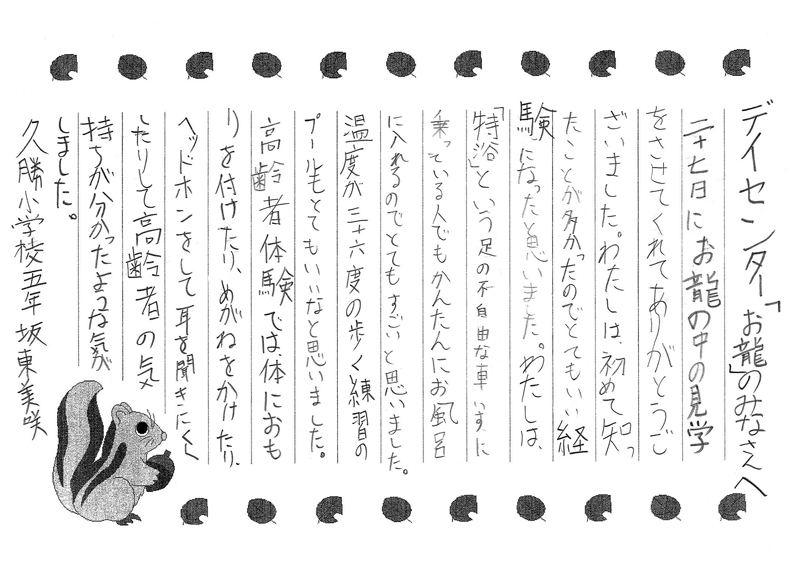 デイセンター「お龍」のみなさんへ
二十七日にお龍の中の見学
をさせてくれてありがとうご
ざいました。わたしは、初めて知っ
たことが多かったのでとてもいい経
験になったと思いました。わたしは、
「特浴」という足の不自由な車いすに
乗っている人でもかんたんにお風呂
に入れるのでとてもすごいと思いました。
温度が三十六度の歩く練習の
プールもとてもいいなと思いました。
高齢者体験では、体におも
りを付けたり、めがねをかけたり、
ヘッドホンをして耳を聞きにくく
したりして高齢者の気
持ちが分かったような気が
しました。
久勝小学校五年 坂東美咲